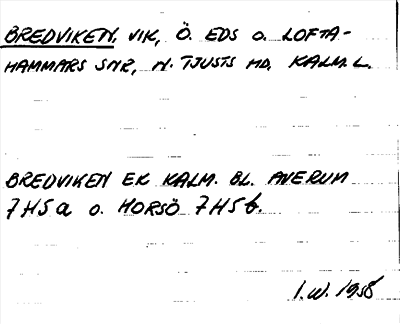 BREDVIKEN, VIK, Ö. EDS O. LOFTA-
HAMMARS SNR, N. TJUSTS HD, KALM. L.
BREDVIKEN EK KALM. BL. AVERUM
7H5a O. HORSÖ 7H5b.
I.W. 1958